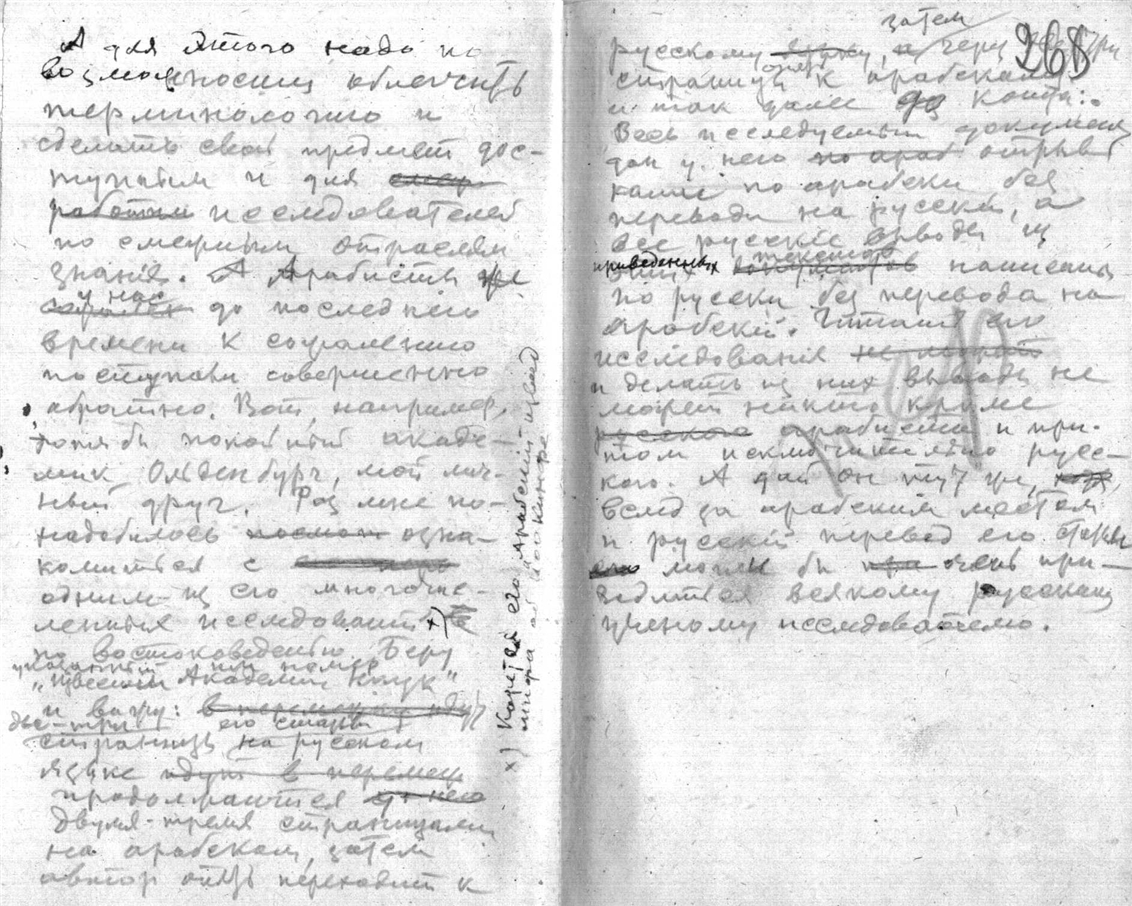 А для этого надо по
возможности облегчить
терминологию и
сделать свой предмет дос-
тупным и для
работы исследователей
по смежным отраслям
знания. А Арабисты же
у нас
до последнего
времени к сожалению
поступали совершенно
обратно. Вот например,
хотя бы покойный акаде-
мик Ольденбург, мой лич-
ный друг. Раз мне по-
надобилось озна-
комиться с
одним из его многочис-
ленных исследований x)
по востоковедению. Беру
указанный мне номер
"Известий Академии Наук"
и вижу: в перемежку идут
две-три его статьи
страницы на русском
языке идут в перемеж
продолжаются
двумя-тремя страницами
на арабском, затем
автор опять переходит к
x) Кажется его арабский перевод
мифа об
268
затем
русскому языку, а через две-три
страницы опять к арабскому
и так далее до конца.
Весь исследуемый документ
дан у него по араб отрыв
ками по арабски без
перевода на русский, а
все русские выводы из
текстов
приведенных документов написаны
по русски без перевода на
арабский. Читать его
исследования не может
и делать из них выводы не
может никто кроме
русского арабиста и при-
том исключительно русс-
кого. А дай он тут же,
вслед за арабским текстом
и русский перевод его статьи
его могли бы при очень при-
годиться всякому русскому
ученому исследователю.